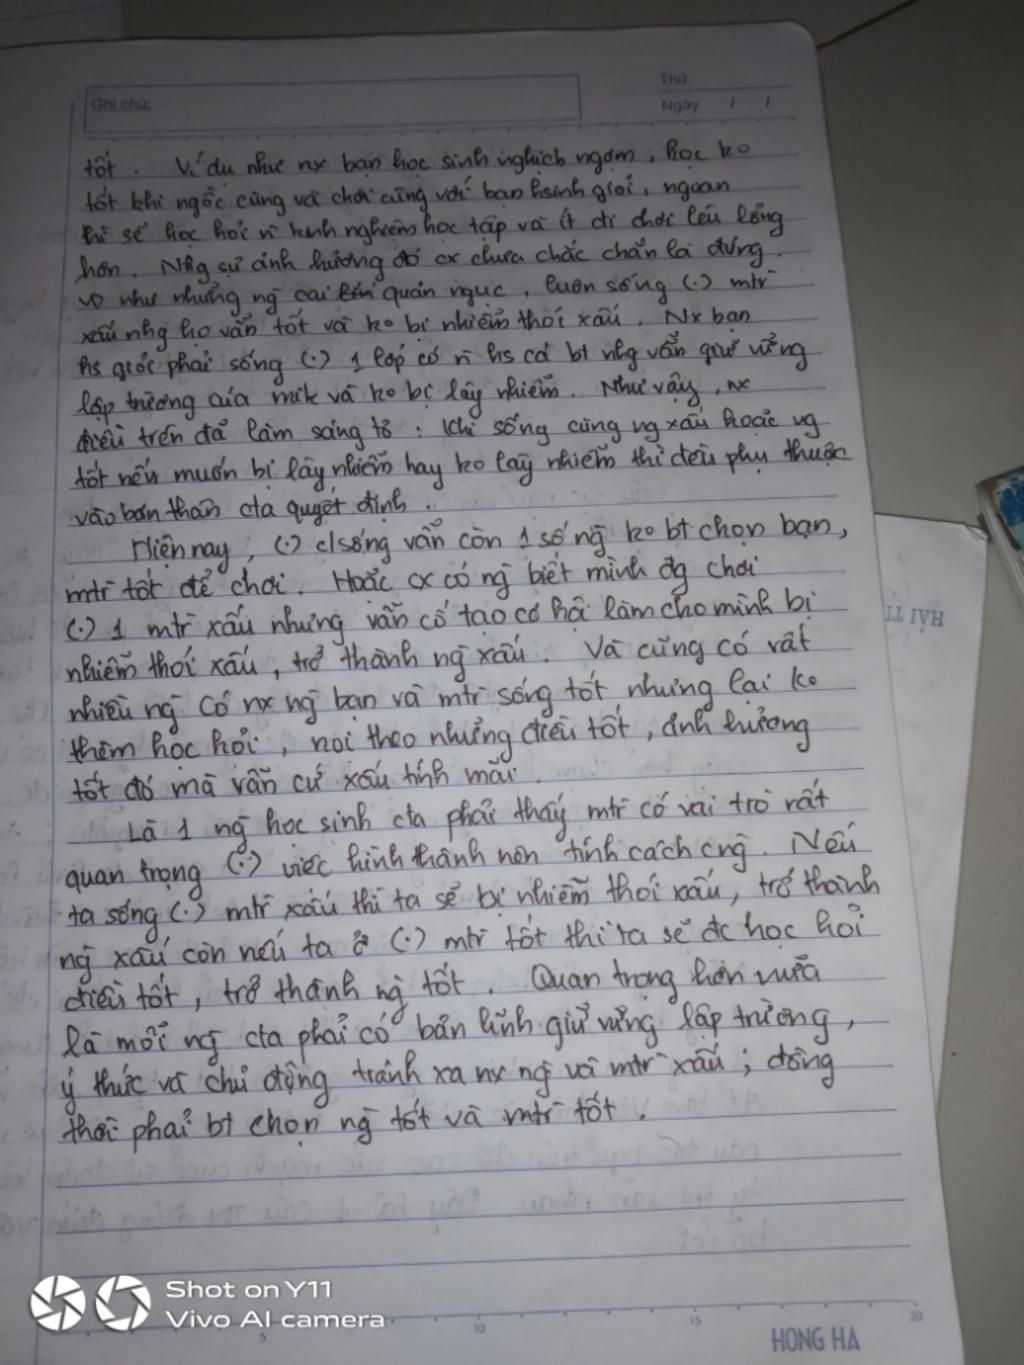 Ghi chú:
Thứ
Ngày / /
tốt. Ví dụ như nx bạn học sinh nghịch ngợm, học ko
tốt khi ngồi cùng và chơi cùng với bạn hsinh giỏi, ngoan
thì sẽ học hỏi n kinh nghiệm học tập và ít đi chơi lêu lổng
hơn. Nhg sự ảnh hưởng đó cx chưa chắc chắn là đúng.
VD như những ng cai quản ngục, luôn sống (.) mtr
xấu nhg họ vẫn tốt và ko bị nhiễm thói xấu. Nx bạn
hs giỏi phải sống (.) 1 lớp có n hs cá bt nhg vẫn giữ vững
lập trường của mik và ko bị lây nhiễm. Như vậy, nx
điều trên đã làm sáng tỏ: Khi sống cùng ng xấu hoặc ng
tốt nếu muốn bị lây nhiễm hay ko lây nhiễm thì đều phụ thuộc
vào bản thân cta quyết định.
Hiện nay, (.) c/sống vẫn còn 1 số ng ko bt chọn bạn,
mtr tốt để chơi. Hoặc cx có ng biết mình đg chơi
(.) 1 mtr xấu nhưng vẫn cố tạo cơ hội làm cho mình bị
nhiễm thói xấu, trở thành ng xấu. Và cũng có rất
nhiều ng có nx ng bạn và mtr sống tốt nhưng lại ko
thèm học hỏi, noi theo những điều tốt, ảnh hưởng
tốt đó mà vẫn cứ xấu tính mãi.
Là 1 ng học sinh cta phải thấy mtr có vai trò rất
quan trọng (.) việc hình thành nên tính cách cng. Nếu
ta sống (.) mtr xấu thì ta sẽ bị nhiễm thói xấu, trở thành
ng xấu còn nếu ta ở (.) mtr tốt thì ta sẽ đc học hỏi
điều tốt, trở thành ng tốt. Quan trọng hơn nữa
là mỗi ng cta phải có bản lĩnh giữ vững lập trường,
ý thức và chủ động tránh xa nx ng và mtr xấu; đồng
thời phải bt chọn ng tốt và mtr tốt.
Shot on Y11
Vivo AI camera
5 10 15 20
HONG HA